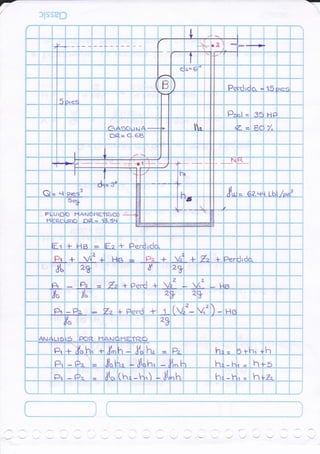 Classic
2
d₂=6"
B
Perdida = 15 pies
5 pies
Pbal = 35 HP
GASOLINA
DR = 0.68
h₂
e = 80%
NR
1
h₁
d₁=3"
h
Q = 4 pies³/seg
γw = 62.44 Lbf/pie³
FLUIDO MANOMETRICO
MERCURIO DR = 13.54
E1 + HB = E2 + Perdida
P1/γo + V1²/2g + HB = P2/γ + V2²/2g + Z2 + Perdida
P1/γo - P2/γo = Z2 + Perd + V2²/2g - V1²/2g - HB
P1-P2/γo = Z2 + Perd + 1/2g (V2² - V1²) - HB
ANALISIS POR MANOMETRO
P1 + γoh1 + γmh - γoh2 = P2    h2 = 5+h1+h
P1 - P2 = γoh2 - γoh1 - γmh    h2-h1 = h+5
P1 - P2 = γo(h2-h1) - γmh    h2-h1 = h+Z2